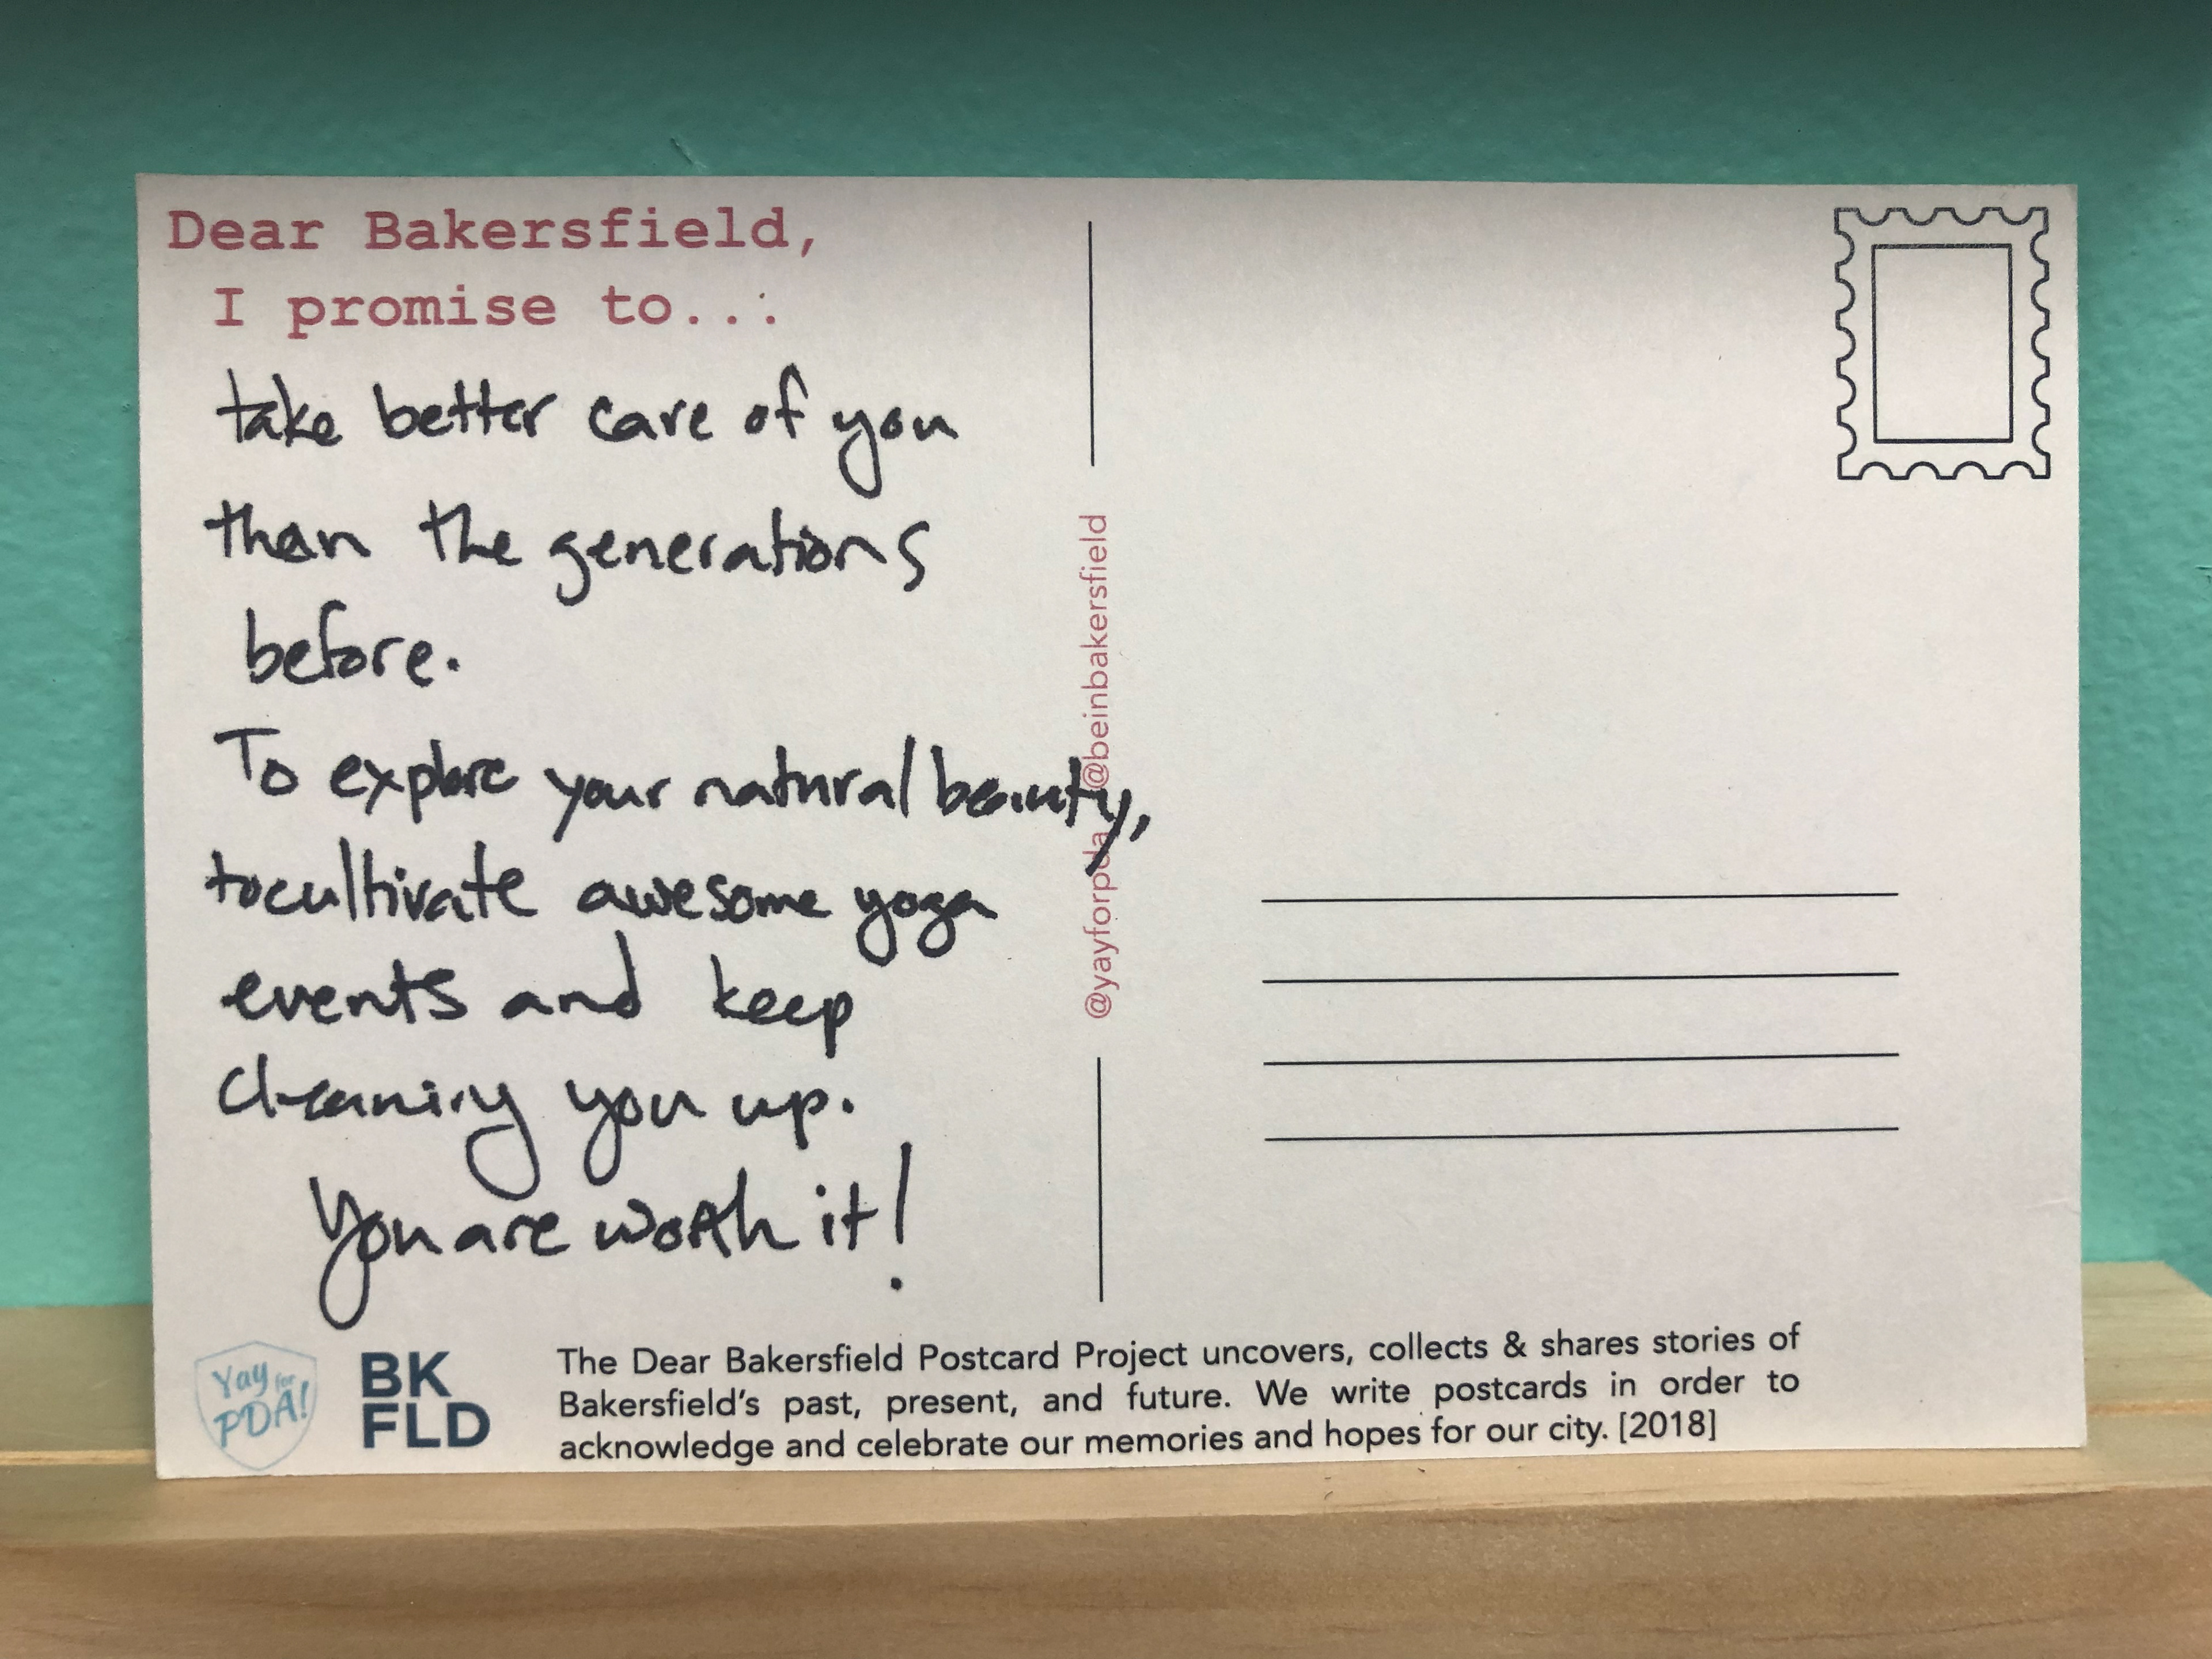 Dear Bakersfield,
I promise to...
take better care of you
than the generations
before.
To explore your natural beauty,
to cultivate awesome yoga
events and keep
cleaning you up.
You are worth it!
@yayforpda @beinbakersfield
Yay for
PDA!
BK
FLD
The Dear Bakersfield Postcard Project uncovers, collects & shares stories of
Bakersfield's past, present, and future. We write postcards in order to
acknowledge and celebrate our memories and hopes for our city. [2018]